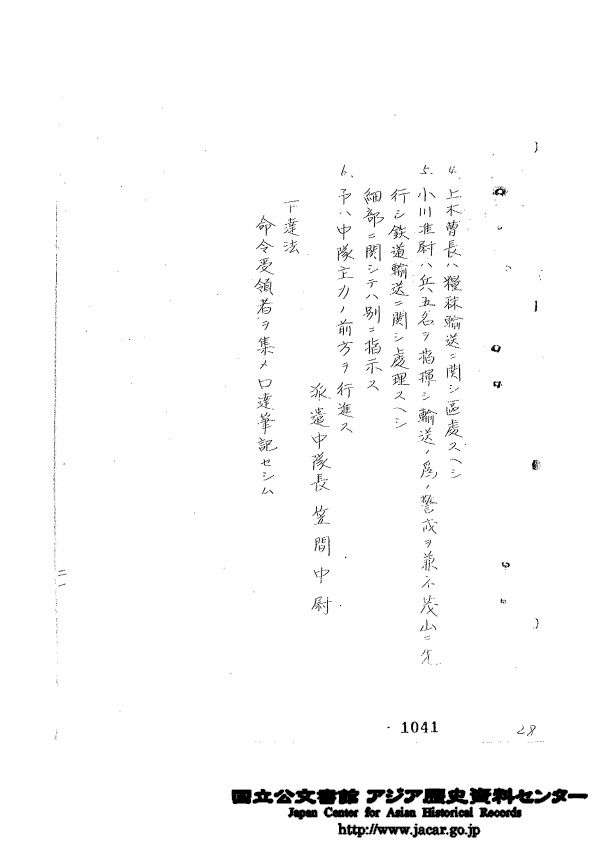 4. 上木曹長ハ糧秣輸送ニ関シ區處スヘシ
5. 小川准尉ハ兵五名ヲ指揮シ輸送ノ爲ノ警戒ヲ兼ネ茂山ニ先
行シ鉄道輸送ニ関シ処理スヘシ
細部ニ関シテハ別ニ指示ス
6. 予ハ中隊主力ノ前方ヲ行進ス
派遣中隊長 笠間中尉
下達法
命令受領者ヲ集メ口達筆記セシム
二一
1041
28
国立公文書館 アジア歴史資料センター
Japan Center for Asian Historical Records
http://www.jacar.go.jp